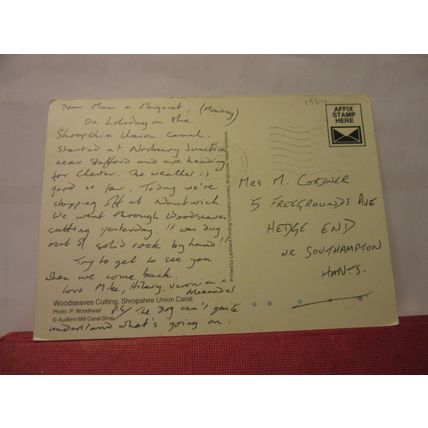 1984
Dear Mum & Margaret, (Monday)
On holiday on the
Shropshire Union Canal.
Started at Norbury Junction
near Stafford and are heading
for Chester. The weather is
good so far. Today we're
stopping off at Nantwich.
We went through Woodseaves
cutting yesterday. It was dug
out of solid rock by hand!!
Try to get to see you
when we come back.
Love Mike, Hilary, Veronica &
Alexander
PS/ The dog can't quite
understand what's going on.
Woodseaves Cutting, Shropshire Union Canal.
Photo: P. Woodhead
© Audlem Mill Canal Shop
AFFIX
STAMP
HERE
MRS M. CORDNER
5 FREEGROUNDS AVE
HEDGE END
NR SOUTHAMPTON
HANTS.